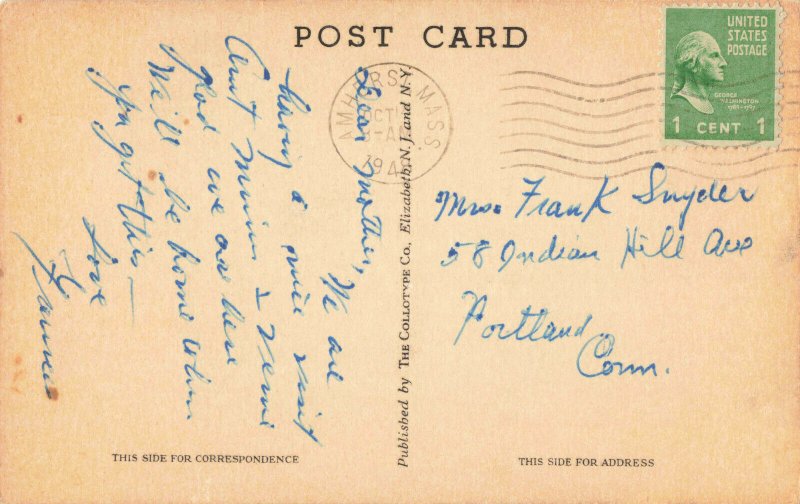 POST CARD
UNITED
STATES
POSTAGE
GEORGE
WASHINGTON
1789-1797
1 CENT 1
AMHERST MASS.
OCT
194
Dear Mother,
We are
having a nice visit
Aunt Minnie &
glad we are here
Will be home when
you get this—
Love
Mrs. Frank Snyder
58 Indian Hill Ave
Portland
Conn.
Published by THE COLLOTYPE CO., Elizabeth, N.J. and N.Y.
THIS SIDE FOR CORRESPONDENCE
THIS SIDE FOR ADDRESS